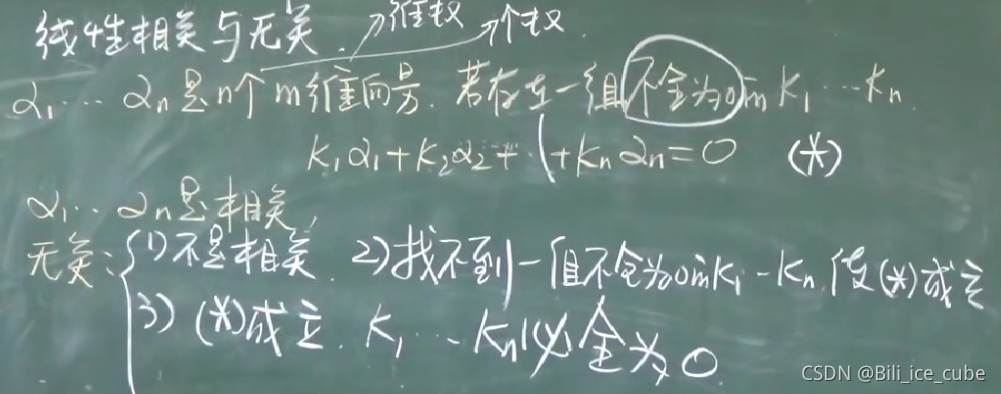 线性相关与无关. 维数 个数.
α₁… αₙ是n个m维向量. 若存在一组不全为0的 K₁ … Kₙ.
K₁α₁+K₂α₂+…+Kₙαₙ=0 (*)
α₁… αₙ是相关,
无关: 1) 不是相关. 2) 找不到一组不全为0的K₁ - Kₙ. 使(*)成立
3) (*)成立. K₁ … Kₙ必全为0
CSDN @Bili_ice_cube